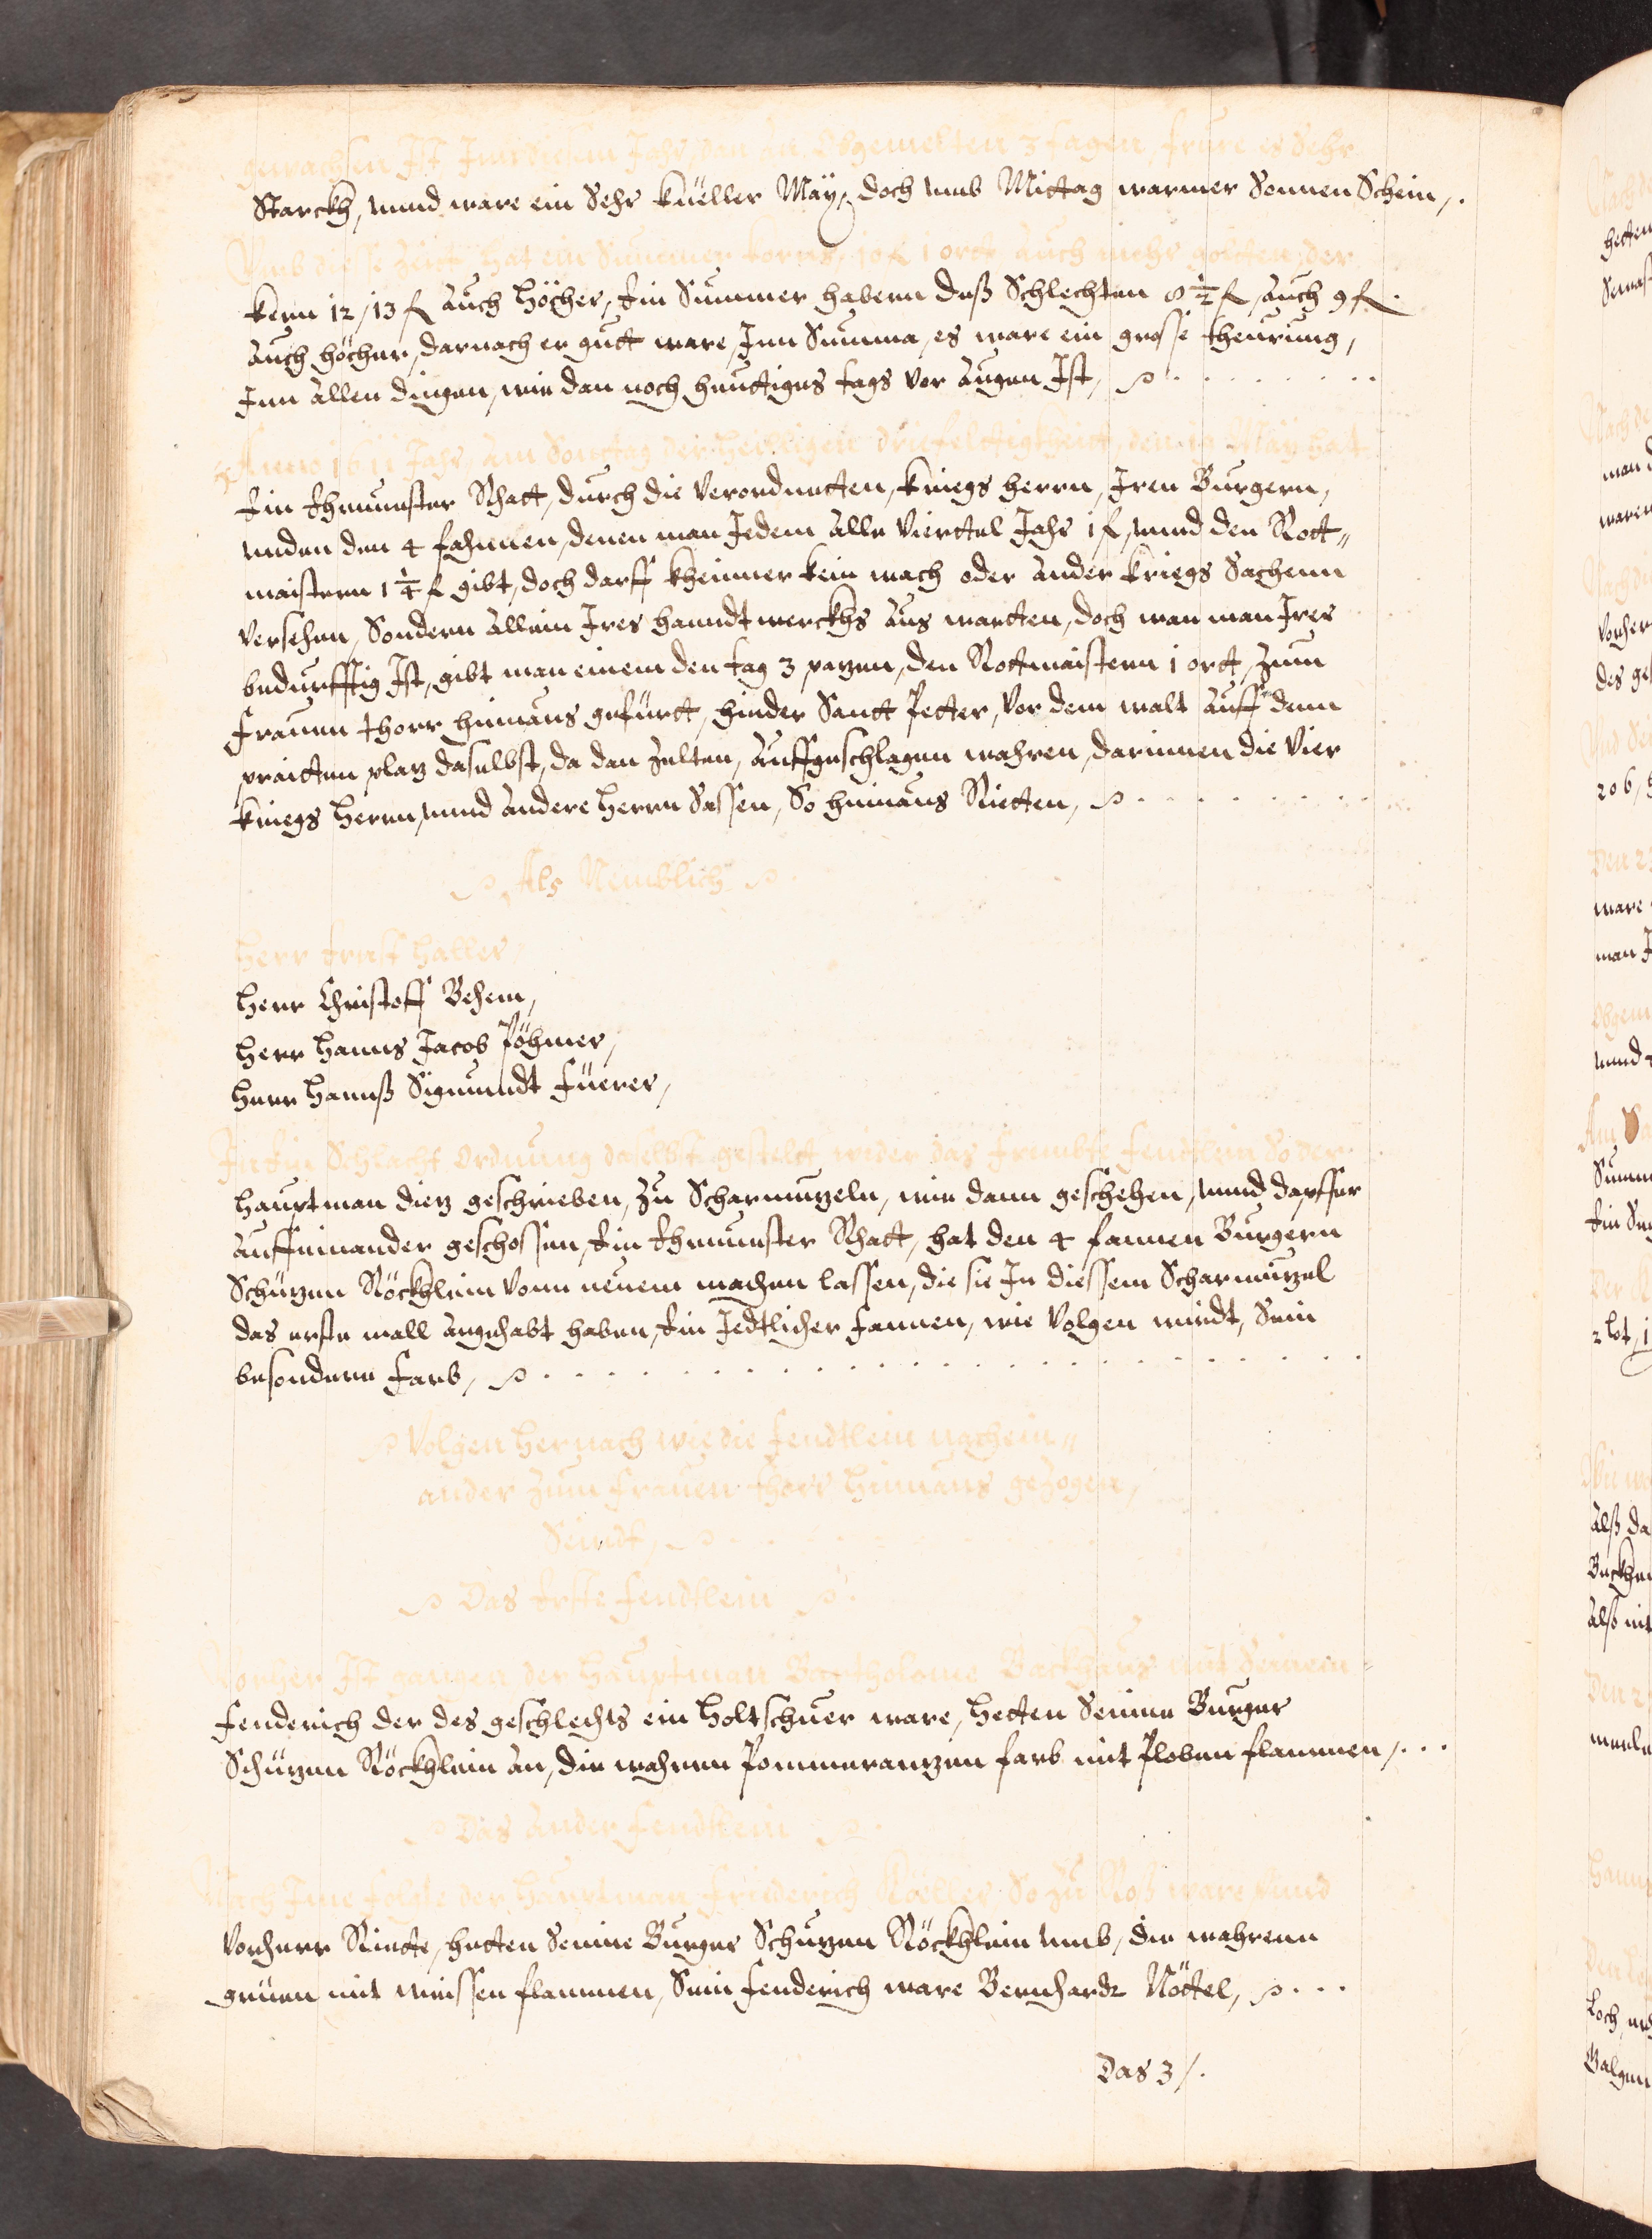 gewachsen Ist Inn diesem Jahr, dan An Obgemelten 3 tagen, frure es Sehr
Starckh, unnd ware ein Sehr küeller Maÿ, doch umb Mittag warmer Sonnen Schein,.
Umb diesse Zeitt, hat ein Summer korns, 10 fl 1 ortt auch mehr golten, der
kern 12 / 13 fl auch Höcher, Ein Summer habern deß Schlechten 8 1/2 fl, auch 9 fl.
auch höcher, darnach er gutt ware, Inn Summa, es ware ein grosse theurung,
Inn allen dingen, wie dan noch heuttiges tags vor augen Ist,
Anno 1611 Jahr, am Sonttag der heiligen drifeltigkheit, den Maÿ hat
Ein Ehrnuester Rhatt, durch die verordnetten, kriegs herrn, Iren Burgern,
unden den 4 fahnnen, denen man Jedem alle Vierttel Jahr 1 fl, unnd den Rott„
maistern 1 1/4 fl gibt, doch darff kheinner kein wach oder ander kriegs Sachenn
versehen, Sondern allein Ires hanndtwerckhs aus wartten, doch wan man Irer
bedurfftig Ist, gibt man einem den tag 3 pazen, den Rottmaistern 1 ortt, zum
frauen thorr hinnaus gefürtt, hinder Santt Petter, vor dem walt auff dem
praitten plaz daselbst, da dan Zelten, auffgeschlagen wahren, darinnen die vier
kriegs Herrn, unnd andere Herrn Sassen, So hinnaus Rietten,
Als Nemblich
Herr Ernst Haller,
Herr Christoff Behem,
Herr Hanns Jacob Pöhmer,
Herr Hannß Sigmundt Füerer,
In Ein Schlacht Ordnung daselbst gestelt wider das frembte fendtlein So der
Hauptman Diez geschrieben, zu Scharmuzeln, wie dann geschehen, unnd dapffer
auffeinander geschossen, Ein Ehrnuester Rhatt, hat den 4 fannen Burgern
Schüzen Röckhlein vonn neuem machen lassen, die sie In diessem Scharmuzel
das erste mall angehabt haben, Ein Jedtlicher fannen, wie volgen wirdt, Sein
besondere farb,
Volgen hernach wie die fendtlein nachein„
ander zum frauen thorr hinnaus gezogen,
Seindt,
Das Erste fendtlein
Vorher Ist gangen der Hauptman Bartholome Backhaus mit Seinem
fenderich der des geschlechts ein Holtschuer ware, hetten Seinne Burger
Schüzen Röckhlein an, die wahren Pommeranzen farb mit Ploben flammen,
Das ander fendtlein
Nach Ime folgte der Hauptman Friderich Köeller So zu Roß ware unnd
vorherr Riette, hetten Seinne Burger Schuzen Röckhlein umb, die wahrenn
grüen mit weissen flammen, Sein fenderich ware Bernhardt Nöttel,
Das 3 /.